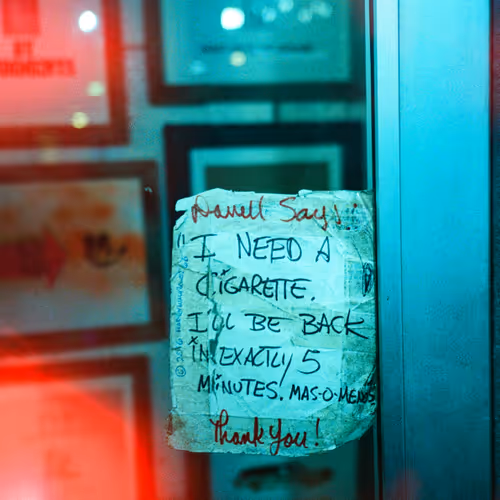 Darell Says:
"I NEED A
CIGARETTE.
I'LL BE BACK
IN EXACTLY 5
MINUTES. MAS-O-MENOS
Thank You!